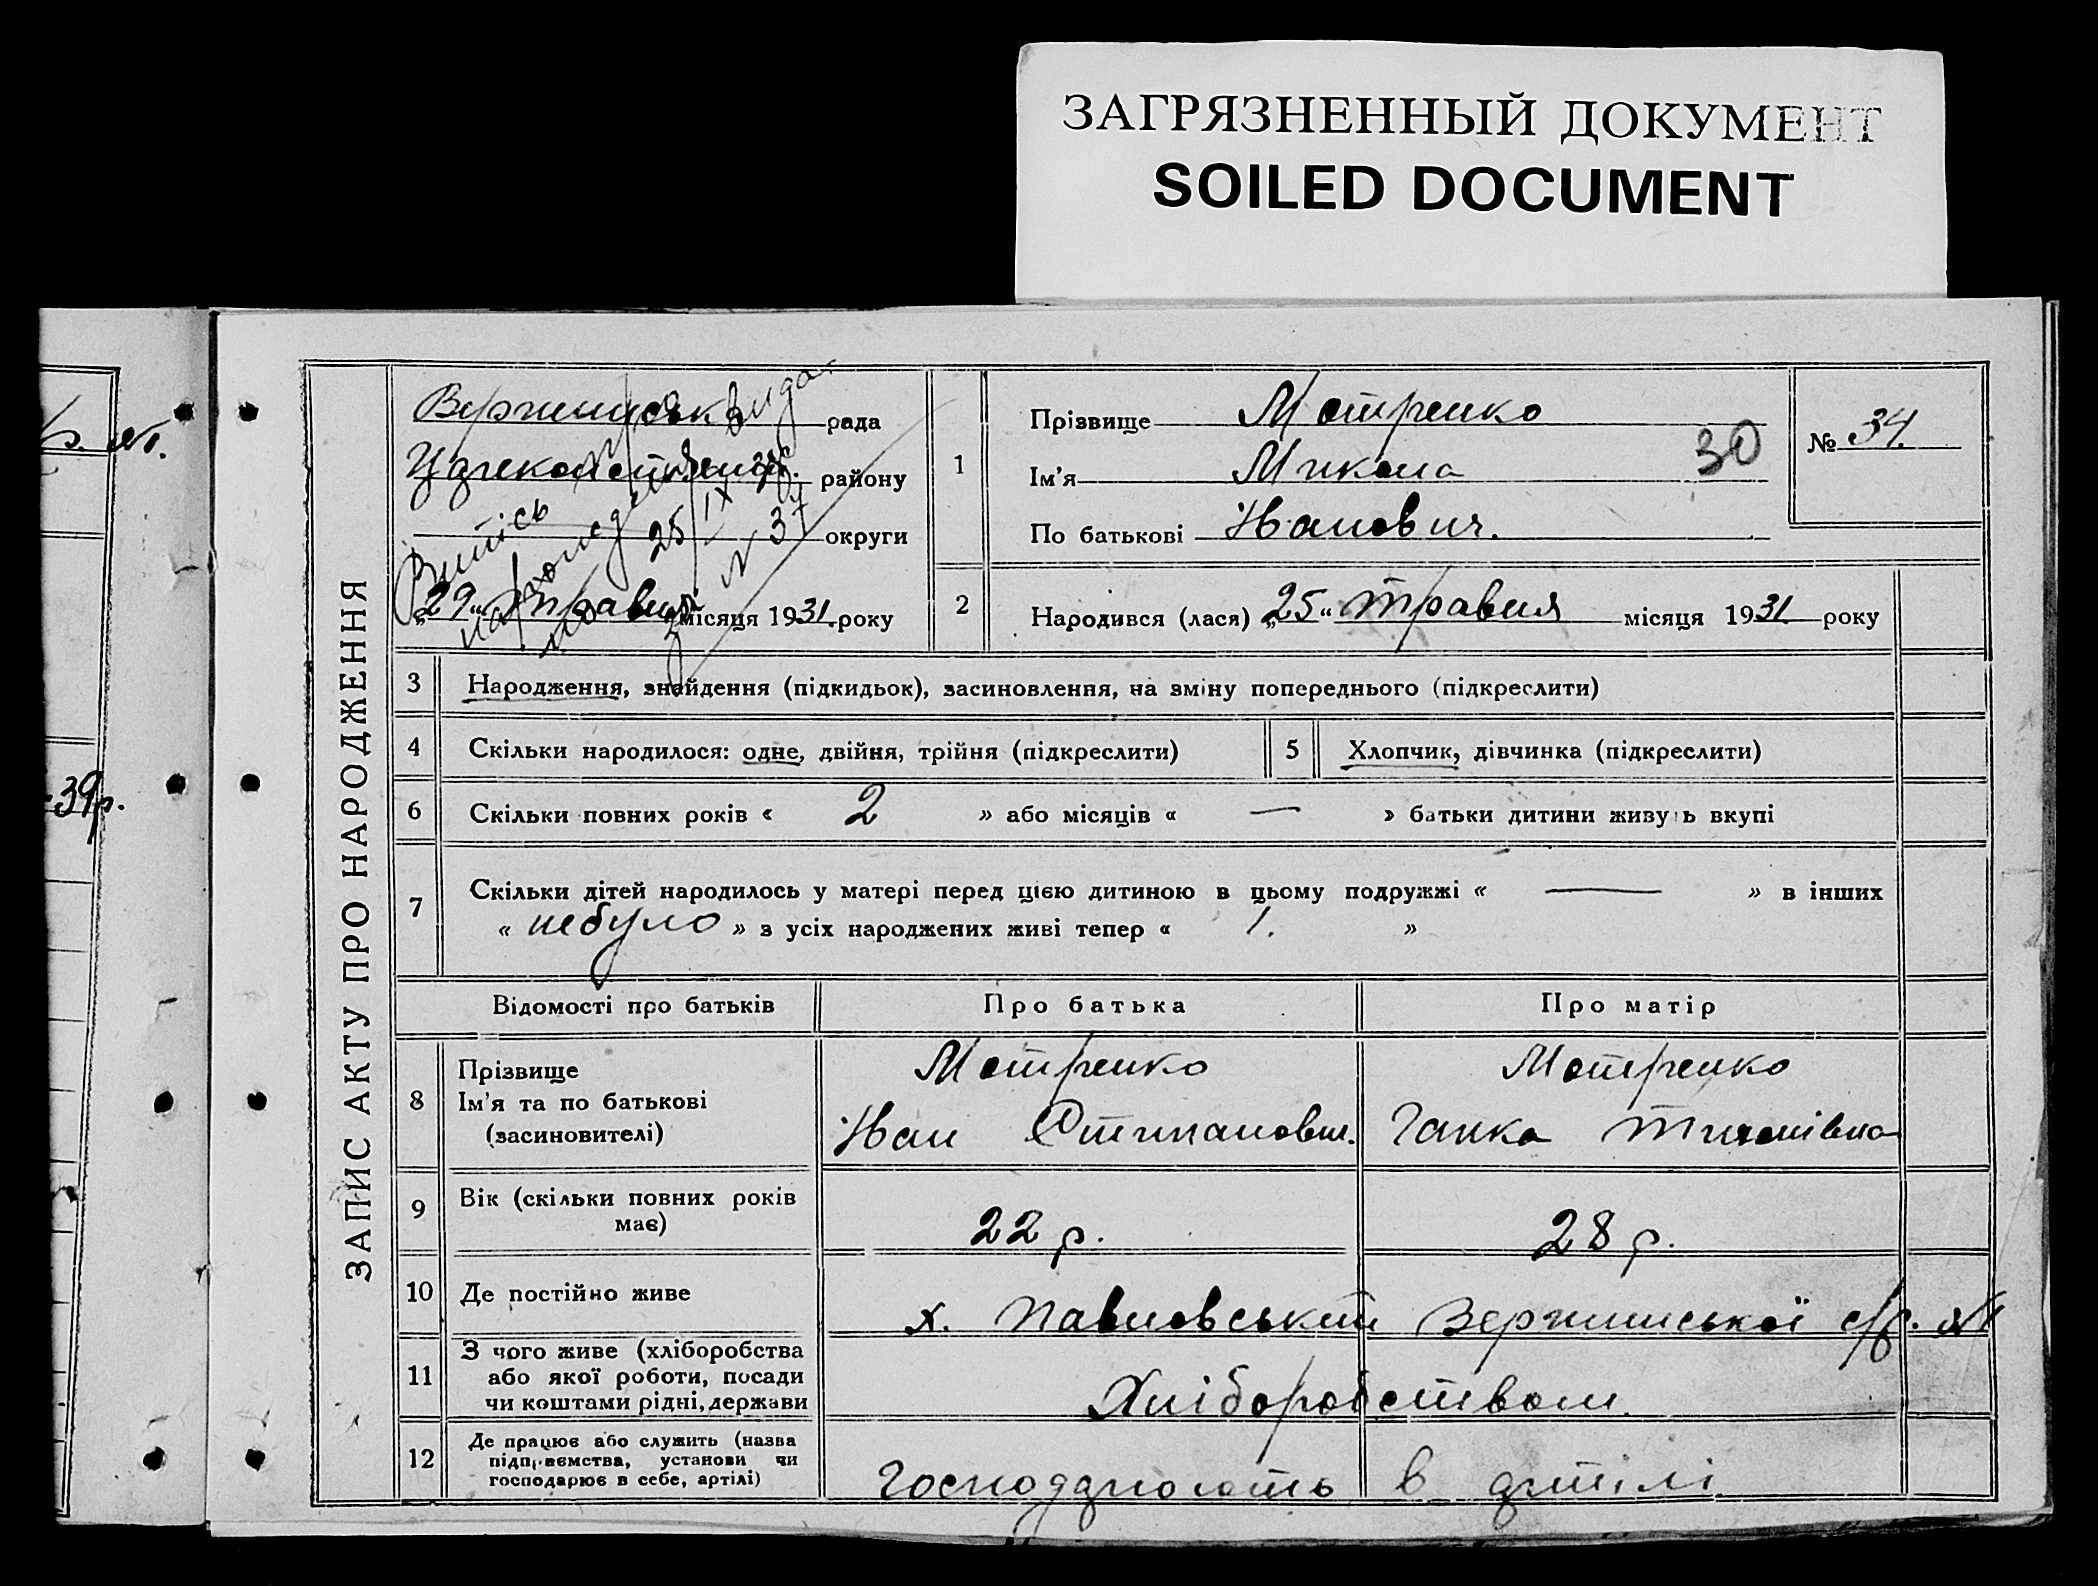 ЗАГРЯЗНЕННЫЙ ДОКУМЕНТ
SOILED DOCUMENT
39р.
ЗАПИС АКТУ ПРО НАРОДЖЕННЯ
рада
району
округи
Витись
видано
25/IX
N 37
„29“ травня місяця 1931 року
1
Прізвище Мотренко
Ім'я Микола
По батькові Іванович.
30
№ 34.
2
Народився (лася) „25“ травня місяця 1931 року
3 Народження, знайдення (підкидьок), засиновлення, на зміну попереднього (підкреслити)
4 Скільки народилося: одне, двійня, трійня (підкреслити) 5 Хлопчик, дівчинка (підкреслити)
6 Скільки повних років « 2 » або місяців « — » батьки дитини живуть вкупі
7 Скільки дітей народилось у матері перед цією дитиною в цьому подружжі « — » в інших
« небуло » з усіх народжених живі тепер « 1. »
Відомості про батьків Про батька Про матір
8 Прізвище Мотренко Мотренко
Ім'я та по батькові Іван Ганка
(засиновителі)
9 Вік (скільки повних років має) 22 р. 28 р.
10 Де постійно живе х. Павловський с/р.
11 З чого живе (хліборобства
або якої роботи, посади
чи коштами рідні, держави Хліборобством.
12 Де працює або служить (назва
підприємства, установи чи
господарює в себе, артілі) Господарюють в артілі.